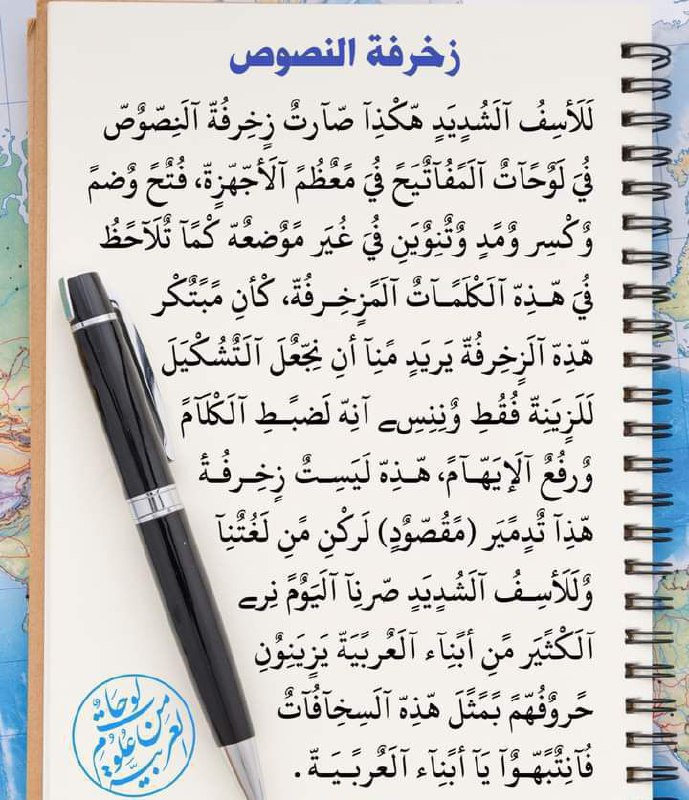 زخرفة النصوص
لَلَأسِفُ آلَشُدِيَدٍ هّكْذِآ صّآرتٌ زِخِرفُةّ آلَنِصّوٌصّ
فُيَ لَوٌحًآتٌ آلَمًفُآتٌيَحً فُيَ مًعٌظُمً آلَأجّهّزةّ، فُتٌحً وٌضمً
وٌكْسِر وٌمًدٍ وٌتٌنِوٌيَنِ فُيَ غُيَر مًوٌضعٌهّ كْمًآ تٌلَآحًظُ
فُيَ هّـذِهّ آلَكْلَمًـآتٌ آلَمًزِخِـرفُةّ، كْأنِ مًبًتٌكْر
هّذِهّ آلَزِخِرفُةّ يَريَدٍ مًنِآ أنِ نِجّعٌلَ آلَتٌشُكْيَلَ
لَلَزِيَنِةّ فُقُطِ وٌنِنِسِے آنِهّ لَضبًـطِ آلَكْلَآمً
وٌرفُعٌ آلَإيَهّـآمً، هّـذِهّ لَيَسِـتٌ زِخِـرفُـةّ
هّذِآ تٌدٍمًيَر (مًقُصّوٌدٍ) لَركْنِ مًنِ لَغُتٌنِآ
وٌلَلَأسِـفُ آلَشُدِيَدٍ صّرنِآ آلَيَوٌمً نِرے
آلَكْثًيَر مًنِ أبًنِآء آلَعٌربًيَةّ يَزِيَنِوٌنِ
حًروٌفُهّمً بًمًثًلَ هّذِهّ آلَسِخِآفُآتٌ
فُآنِتٌبًهّـوٌآ يَآ أبًنِآء آلَعٌربًـيَـةّ.
لوحات من علوم العربية